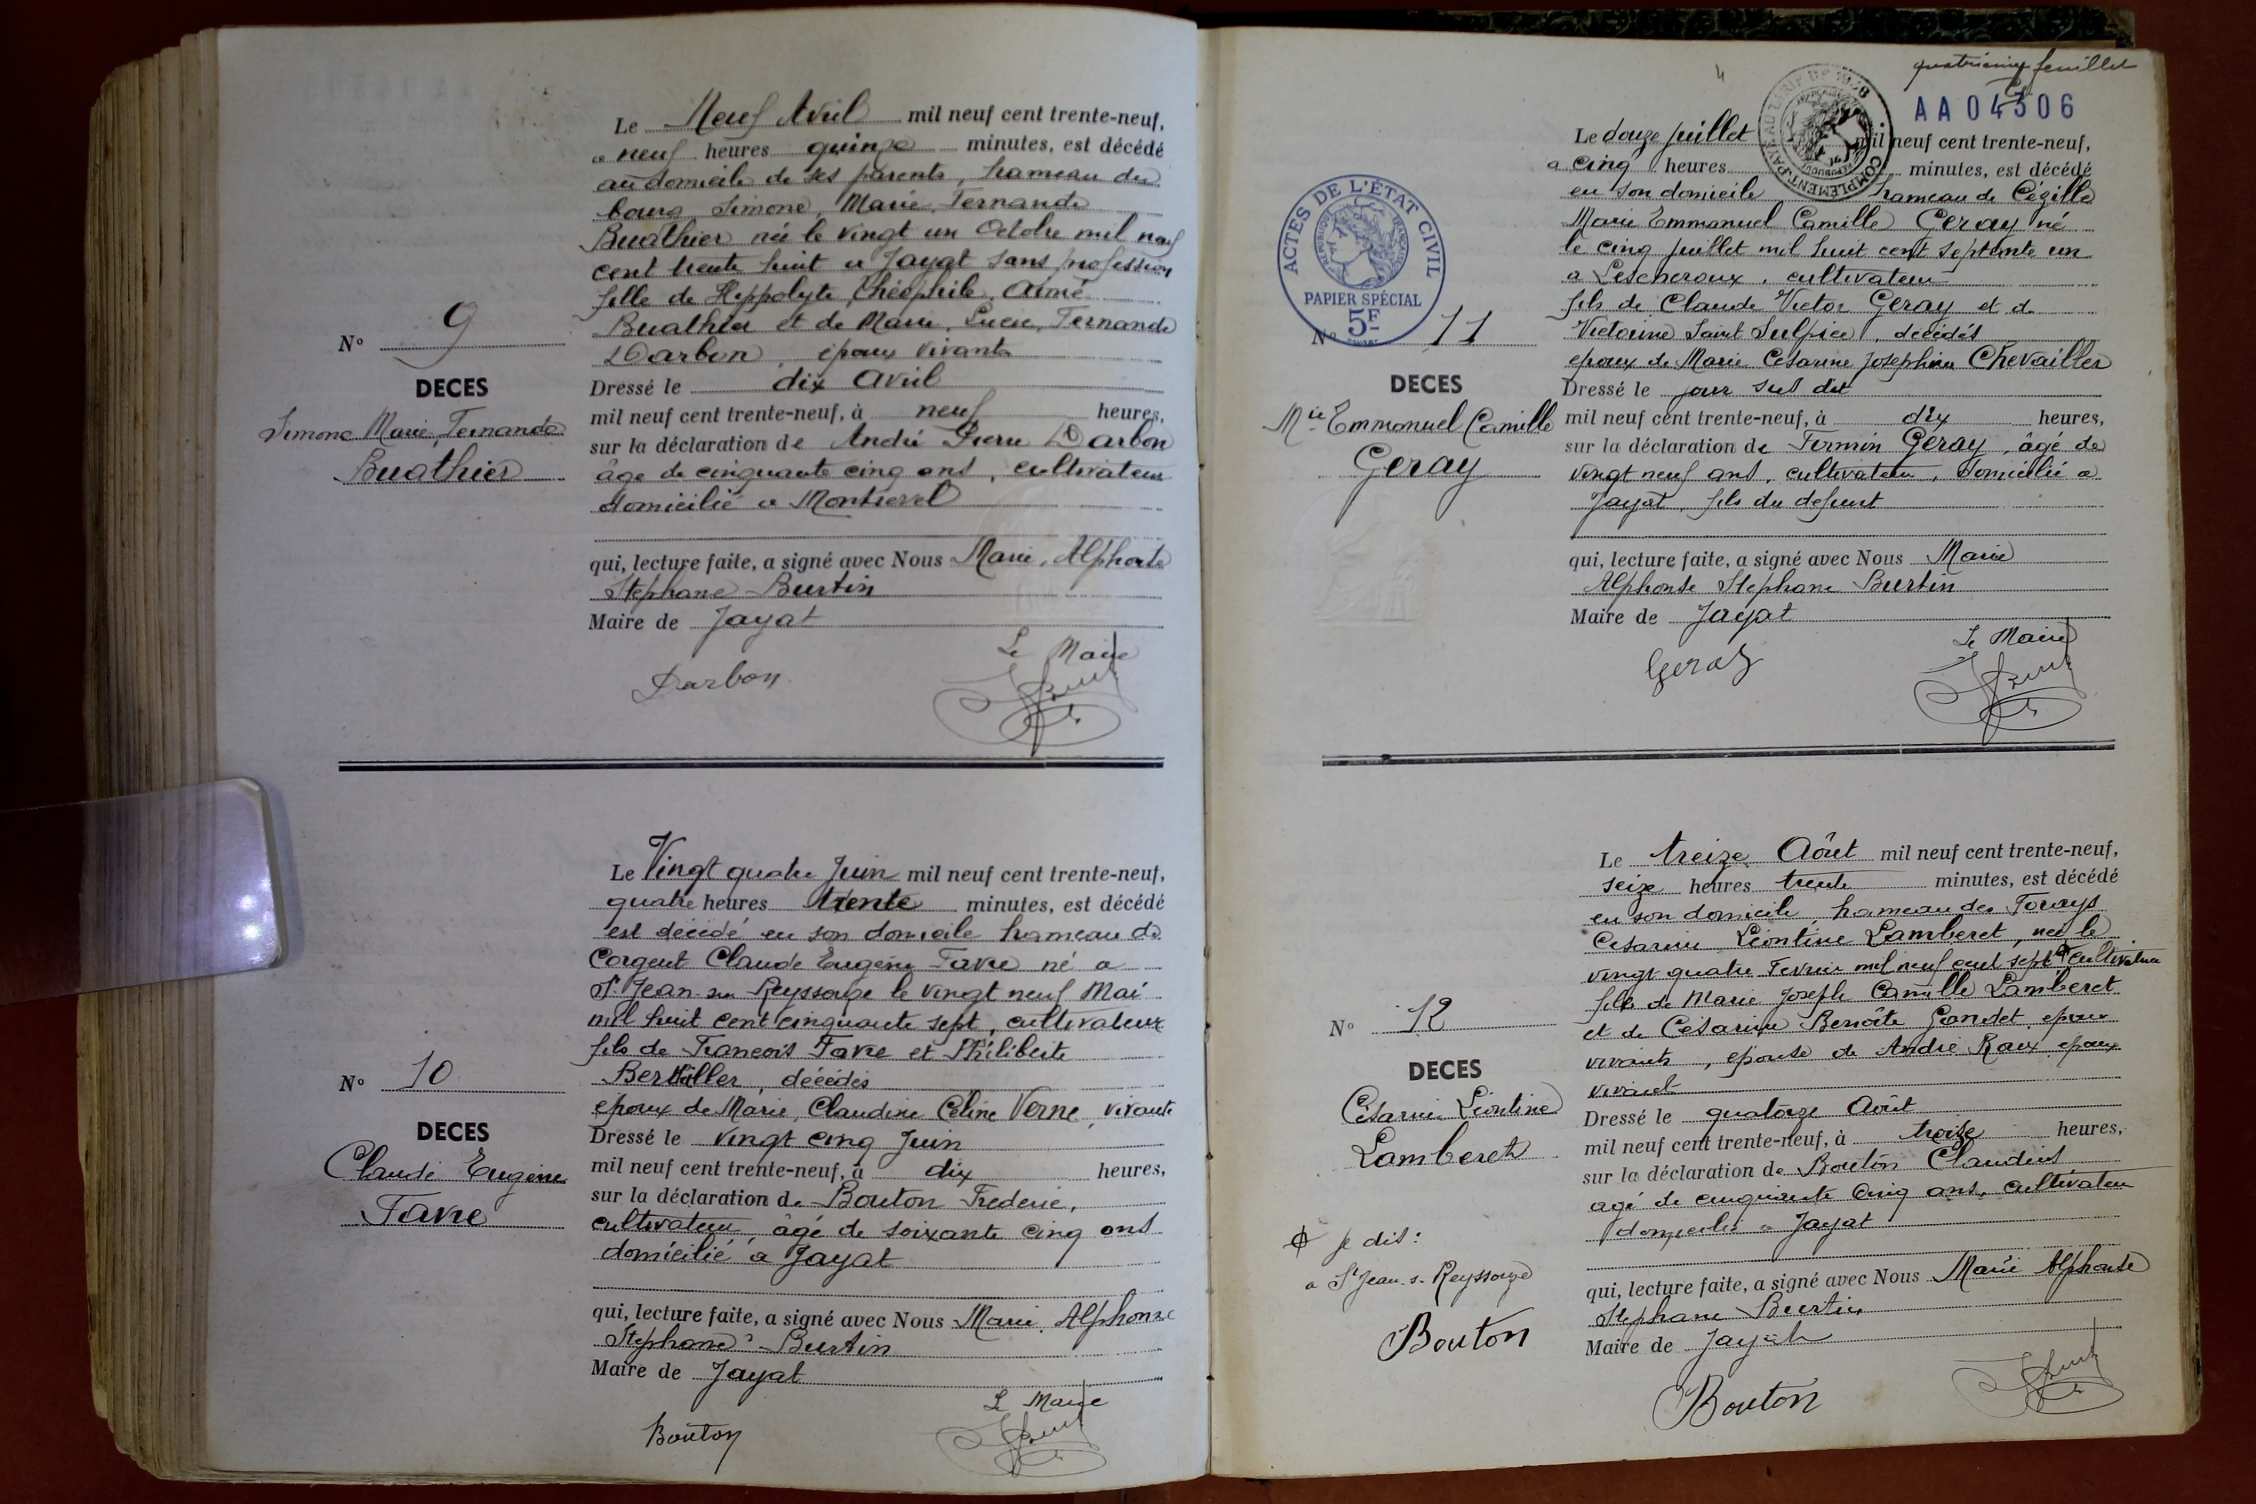 Le Neuf Avril mil neuf cent trente-neuf,
a neuf heures quinze minutes, est décédé
au domicile de ses parents, hameau du
bourg Simone, Marie, Fernande
Buathier née le vingt un Octobre mil neuf
cent trente huit a Jayat sans profession
fille de Hippolyte, Théophile, Aimé
Buathier et de Marie, Lucie, Fernande
Darbon, époux vivants
N° 9
DECES
Simone Marie, Fernande
Buathier
Dressé le dix Avril
mil neuf cent trente-neuf, à neuf heures,
sur la déclaration de André Pierre Darbon
âge de cinquante cinq ans, cultivateur
domicilié a Montrevel
qui, lecture faite, a signé avec Nous Marie, Alphonse
Stephane Burtin
Maire de Jayat
Le Maire
Darbon
Le Vingt quatre Juin mil neuf cent trente-neuf,
quatre heures trente minutes, est décédé
est décédé en son domicile hameau de
Corgent Claude Eugène Favre né a
St Jean sur Reyssouze le vingt neuf Mai
mil huit cent cinquante sept, cultivateur
fils de François Favre et Philiberte
Berthiller, décédés
époux de Marie, Claudine Céline Verne, vivante
N° 10
DECES
Claude Eugène
Favre
Dressé le vingt cinq Juin
mil neuf cent trente-neuf, à dix heures,
sur la déclaration de Bouton Frederic,
cultivateur, âgé de soixante cinq ans
domicilié a Jayat
qui, lecture faite, a signé avec Nous Marie, Alphonse
Stephane Burtin
Maire de Jayat
Le Maire
Bouton
4
quatrième feuillet
AA04306
COMPLEMENT
Le douze juillet mil neuf cent trente-neuf,
a cinq heures minutes, est décédé
en son domicile hameau de Cézille
Marie Emmanuel Camille Geray né
le cinq juillet mil huit cent septante un
a Lescheroux, cultivateur
fils de Claude Victor Geray et d
Victorine Saint Sulpice, décédés
époux de Marie Césarine Joséphine Chevailler
ACTES DE L'ÉTAT CIVIL
REPUBLIQUE FRANÇAISE
PAPIER SPÉCIAL
5F
N° 11
DECES
Mie Emmanuel Camille
Geray
Dressé le jour sus dit
mil neuf cent trente-neuf, à dix heures,
sur la déclaration de Firmin Geray, âgé de
vingt neuf ans, cultivateur, domicilié a
Jayat, fils du defunt
qui, lecture faite, a signé avec Nous Marie
Alphonse Stephane Burtin
Maire de Jayat
Le Maire
Geray
Le treize Août mil neuf cent trente-neuf,
seize heures trente minutes, est décédé
en son domicile, hameau des
Césarine Léontine Lamberet, née le
vingt quatre Fevrier mil neuf cent sept cultivatrice
fille de Marie Joseph Camille Lamberet
et de Césarine Benoîte Gandet, époux
vivants, épouse de André Roux époux
vivant
N° 12
DECES
Césarine Léontine
Lamberet
Dressé le quatorze Août
mil neuf cent trente-neuf, à treize heures,
sur la déclaration de Bouton Claudius
agé de cinquante cinq ans, cultivateur
domicilié a Jayat
je dis:
a St Jean s. Reyssouze
Bouton
qui, lecture faite, a signé avec Nous Marie Alphonse
Stephane Burtin
Maire de Jayat
Bouton